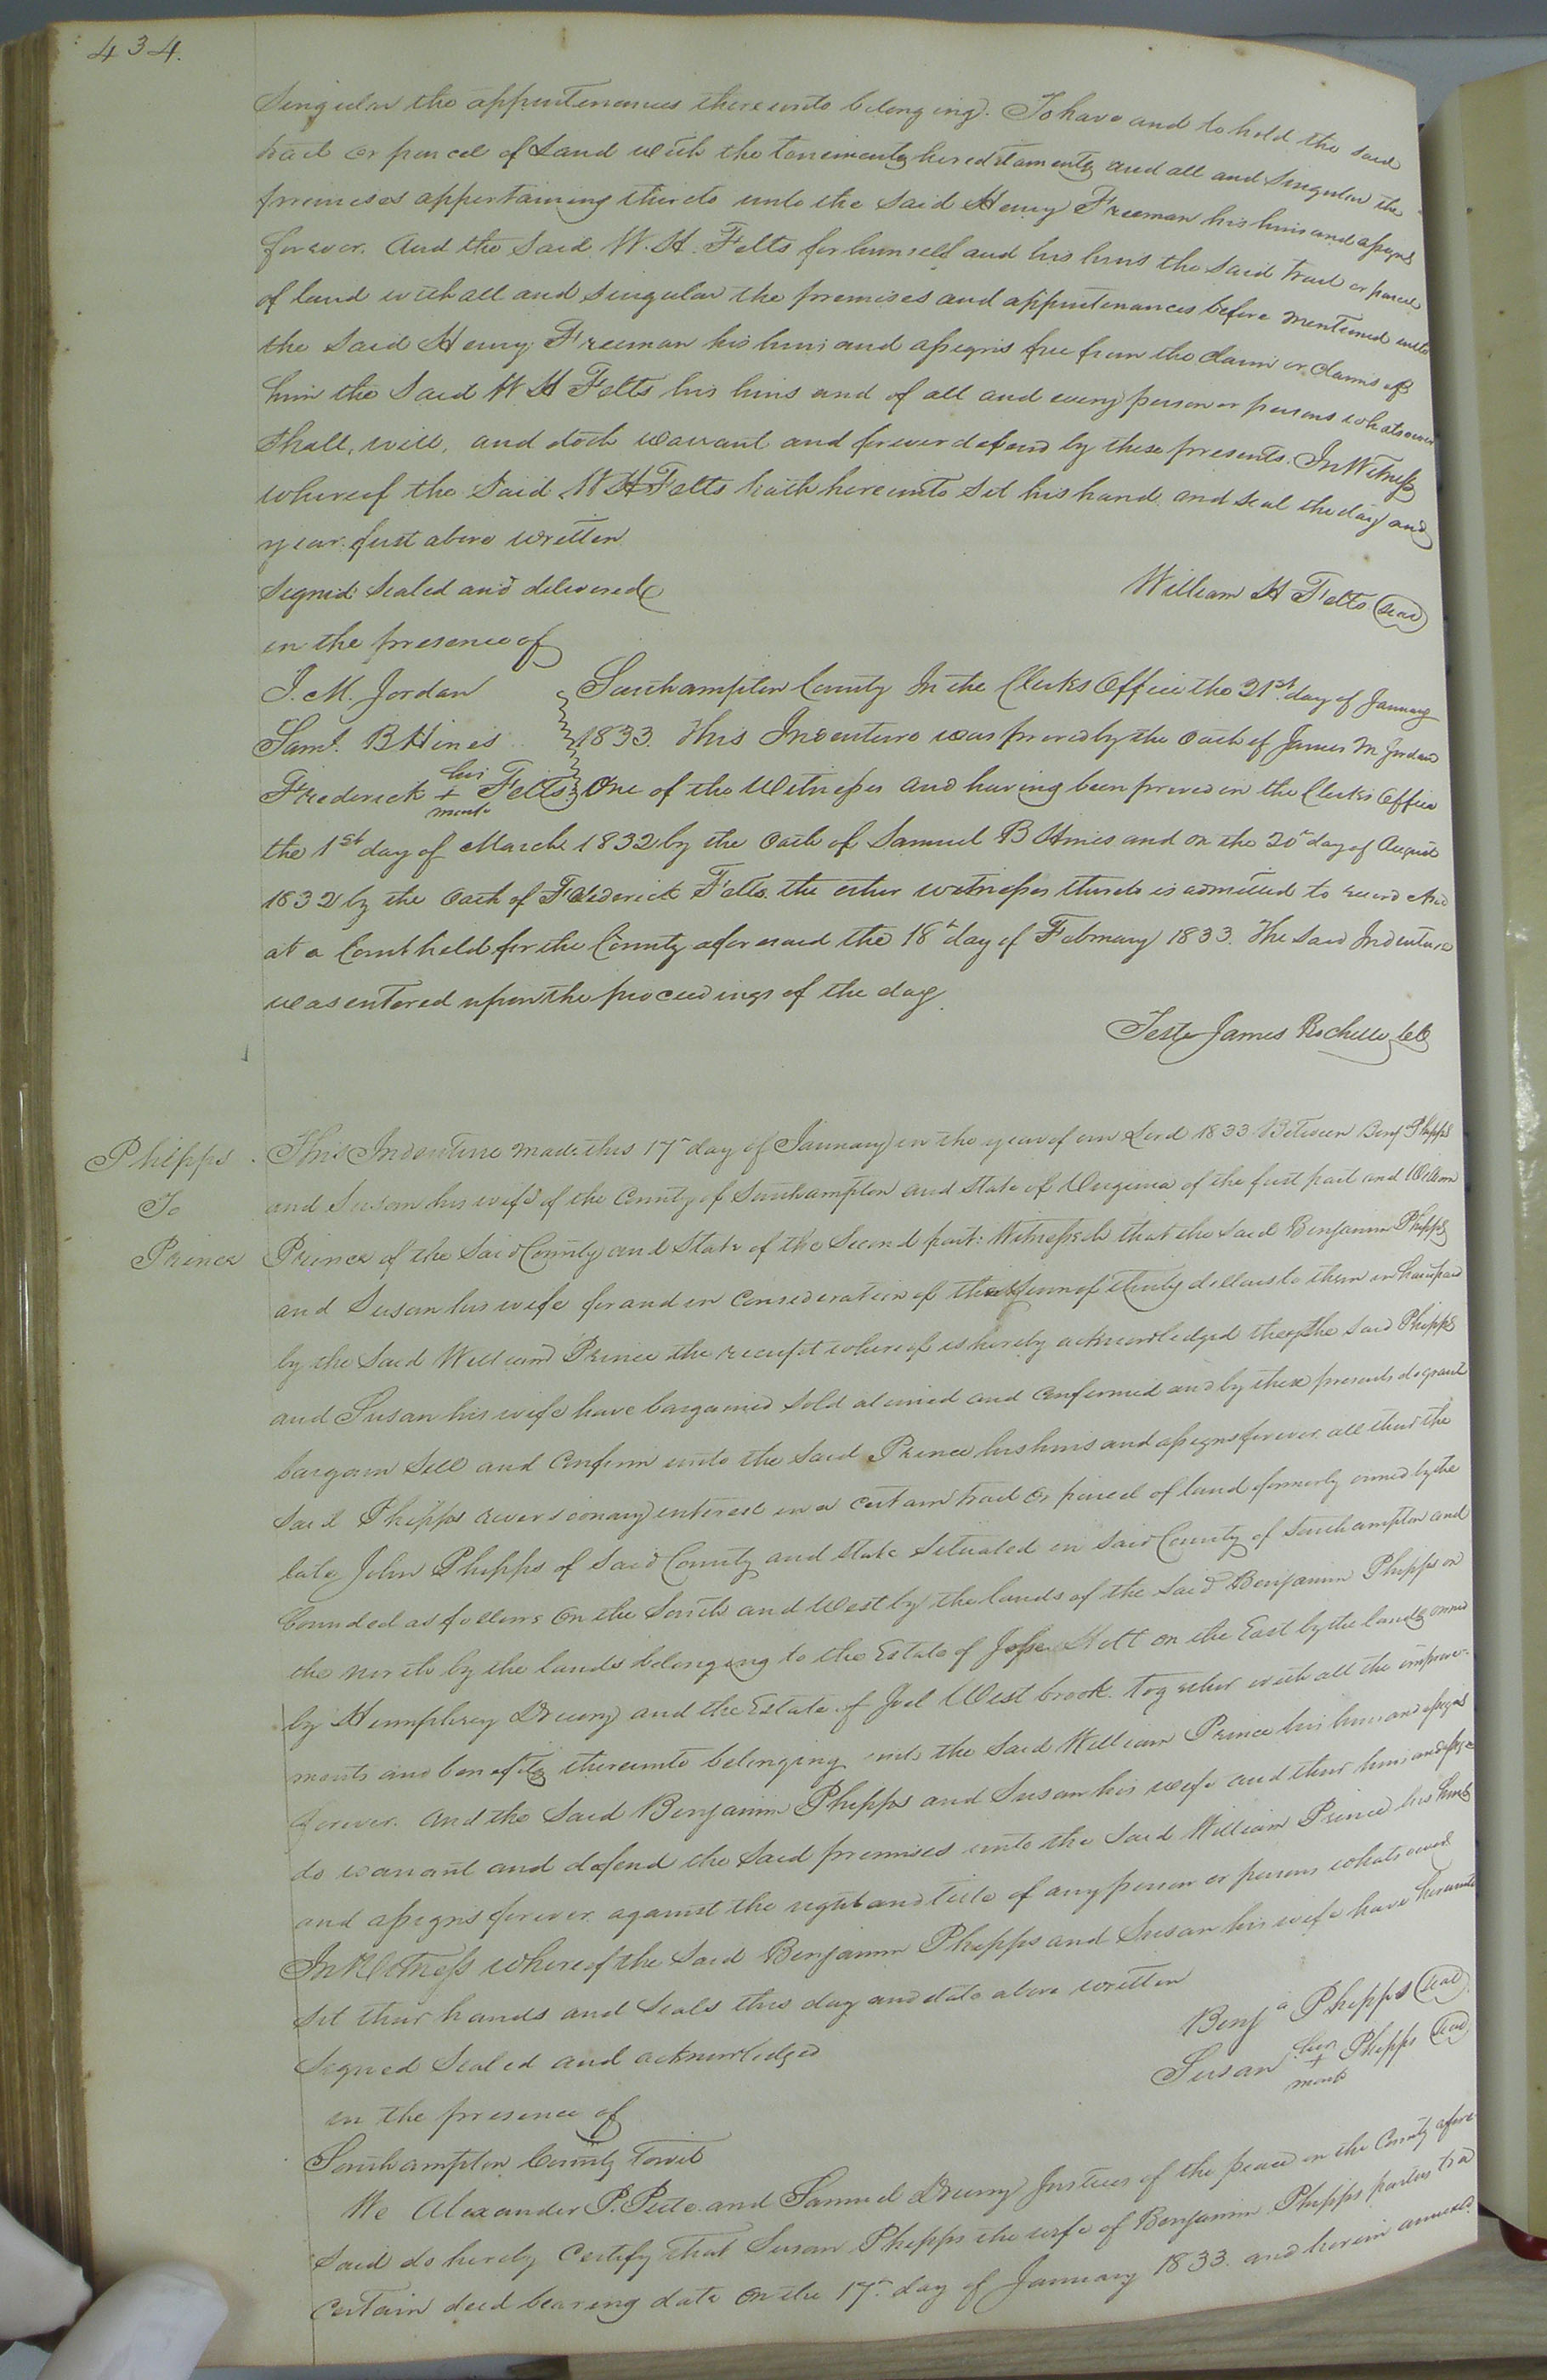 434.
Singular the appurtenances thereunto belonging. To have and to hold the said
tract or parcel of Land with the tenements hereditaments and all and Singular the
premises appertaining thereto unto the said Henry Freeman his heirs and assigns
forever. And the Said W. H. Felts for himself and his heirs the said tract or parcel
of land with all and Singular the premises and appurtenances before mentioned unto
the Said Henry Freeman his heirs and assigns free from the claim or claims of
him the Said W H Felts his heirs and of all and every person or persons whatsoever
Shall, will, and doth warrant and forever defend by these presents. In Witness
whereof the Said W H Felts hath hereunto Set his hand and seal the day and
year first above written
Signed Sealed and delivered
William H Felts Seal
in the presence of
J. M. Jordan
Saml. B Hines
Frederick his + mark Felts
Southampton County In the Clerks Office the 21st day of January
1833. This Indenture was proved by the Oath of James M Jordan
One of the Witnesses and having been proved in the Clerks Office
the 1st day of March 1832 by the Oath of Samuel B Hines and on the 20th day of August
1832 by the Oath of Frederick Felts the other witnesses thereto is admitted to record And
at a Court held for the County aforesaid the 18th day of February 1833. The Said Indenture
was entered upon the proceedings of the day.
Teste James Rochelle CC
Phipps
To
Prince
This Indenture made this 17th day of January in the year of our Lord 1833 Between Benj Phipps
and Susan his wife of the County of Southampton and State of Virginia of the first part and William
Prince of the Said County and State of the Second part: Witnesseth that the Said Benjamin Phipps
and Susan his wife for and in Consideration of the Sum of thirty dollars to them in hand paid
by the Said William Prince the receipt whereof is hereby acknowledged they the Said Phipps
and Susan his wife have bargained Sold aliened and Confirmed and by these presents do grant
bargain Sell and Confirm unto the Said Prince his heirs and assigns forever all that the
Said Phipps reversionary interest in a certain tract or parcel of land formerly owned by the
late John Phipps of Said County and State Situated in Said County of Southampton and
bounded as follows On the South and West by the lands of the Said Benjamin Phipps on
the north by the lands belonging to the Estate of Jesse Holt on the East by the lands owned
by Humphrey Drewry and the Estate of Joel Westbrook. together with all the improve-
ments and benefits thereunto belonging unto the Said William Prince his heirs and assigns
forever. And the Said Benjamin Phipps and Susan his wife and their heirs and assigns
do warrant and defend the Said premises unto the Said William Prince his heirs
and assigns forever against the right and title of any person or persons whatsoever
In Witness whereof the Said Benjamin Phipps and Susan his wife have hereunto
Set their hands and Seals this day and date above written
Benja Phipps Seal
Signed Sealed and acknowledged
Susan her + mark Phipps Seal
in the presence of
Southampton County Towit
We Alexander P. Peete and Samuel Drewry Justices of the peace in the County afore
Said do hereby Certify that Susan Phipps the wife of Benjamin Phipps parties to a
Certain deed bearing date On the 17th day of January 1833. and herein annexed